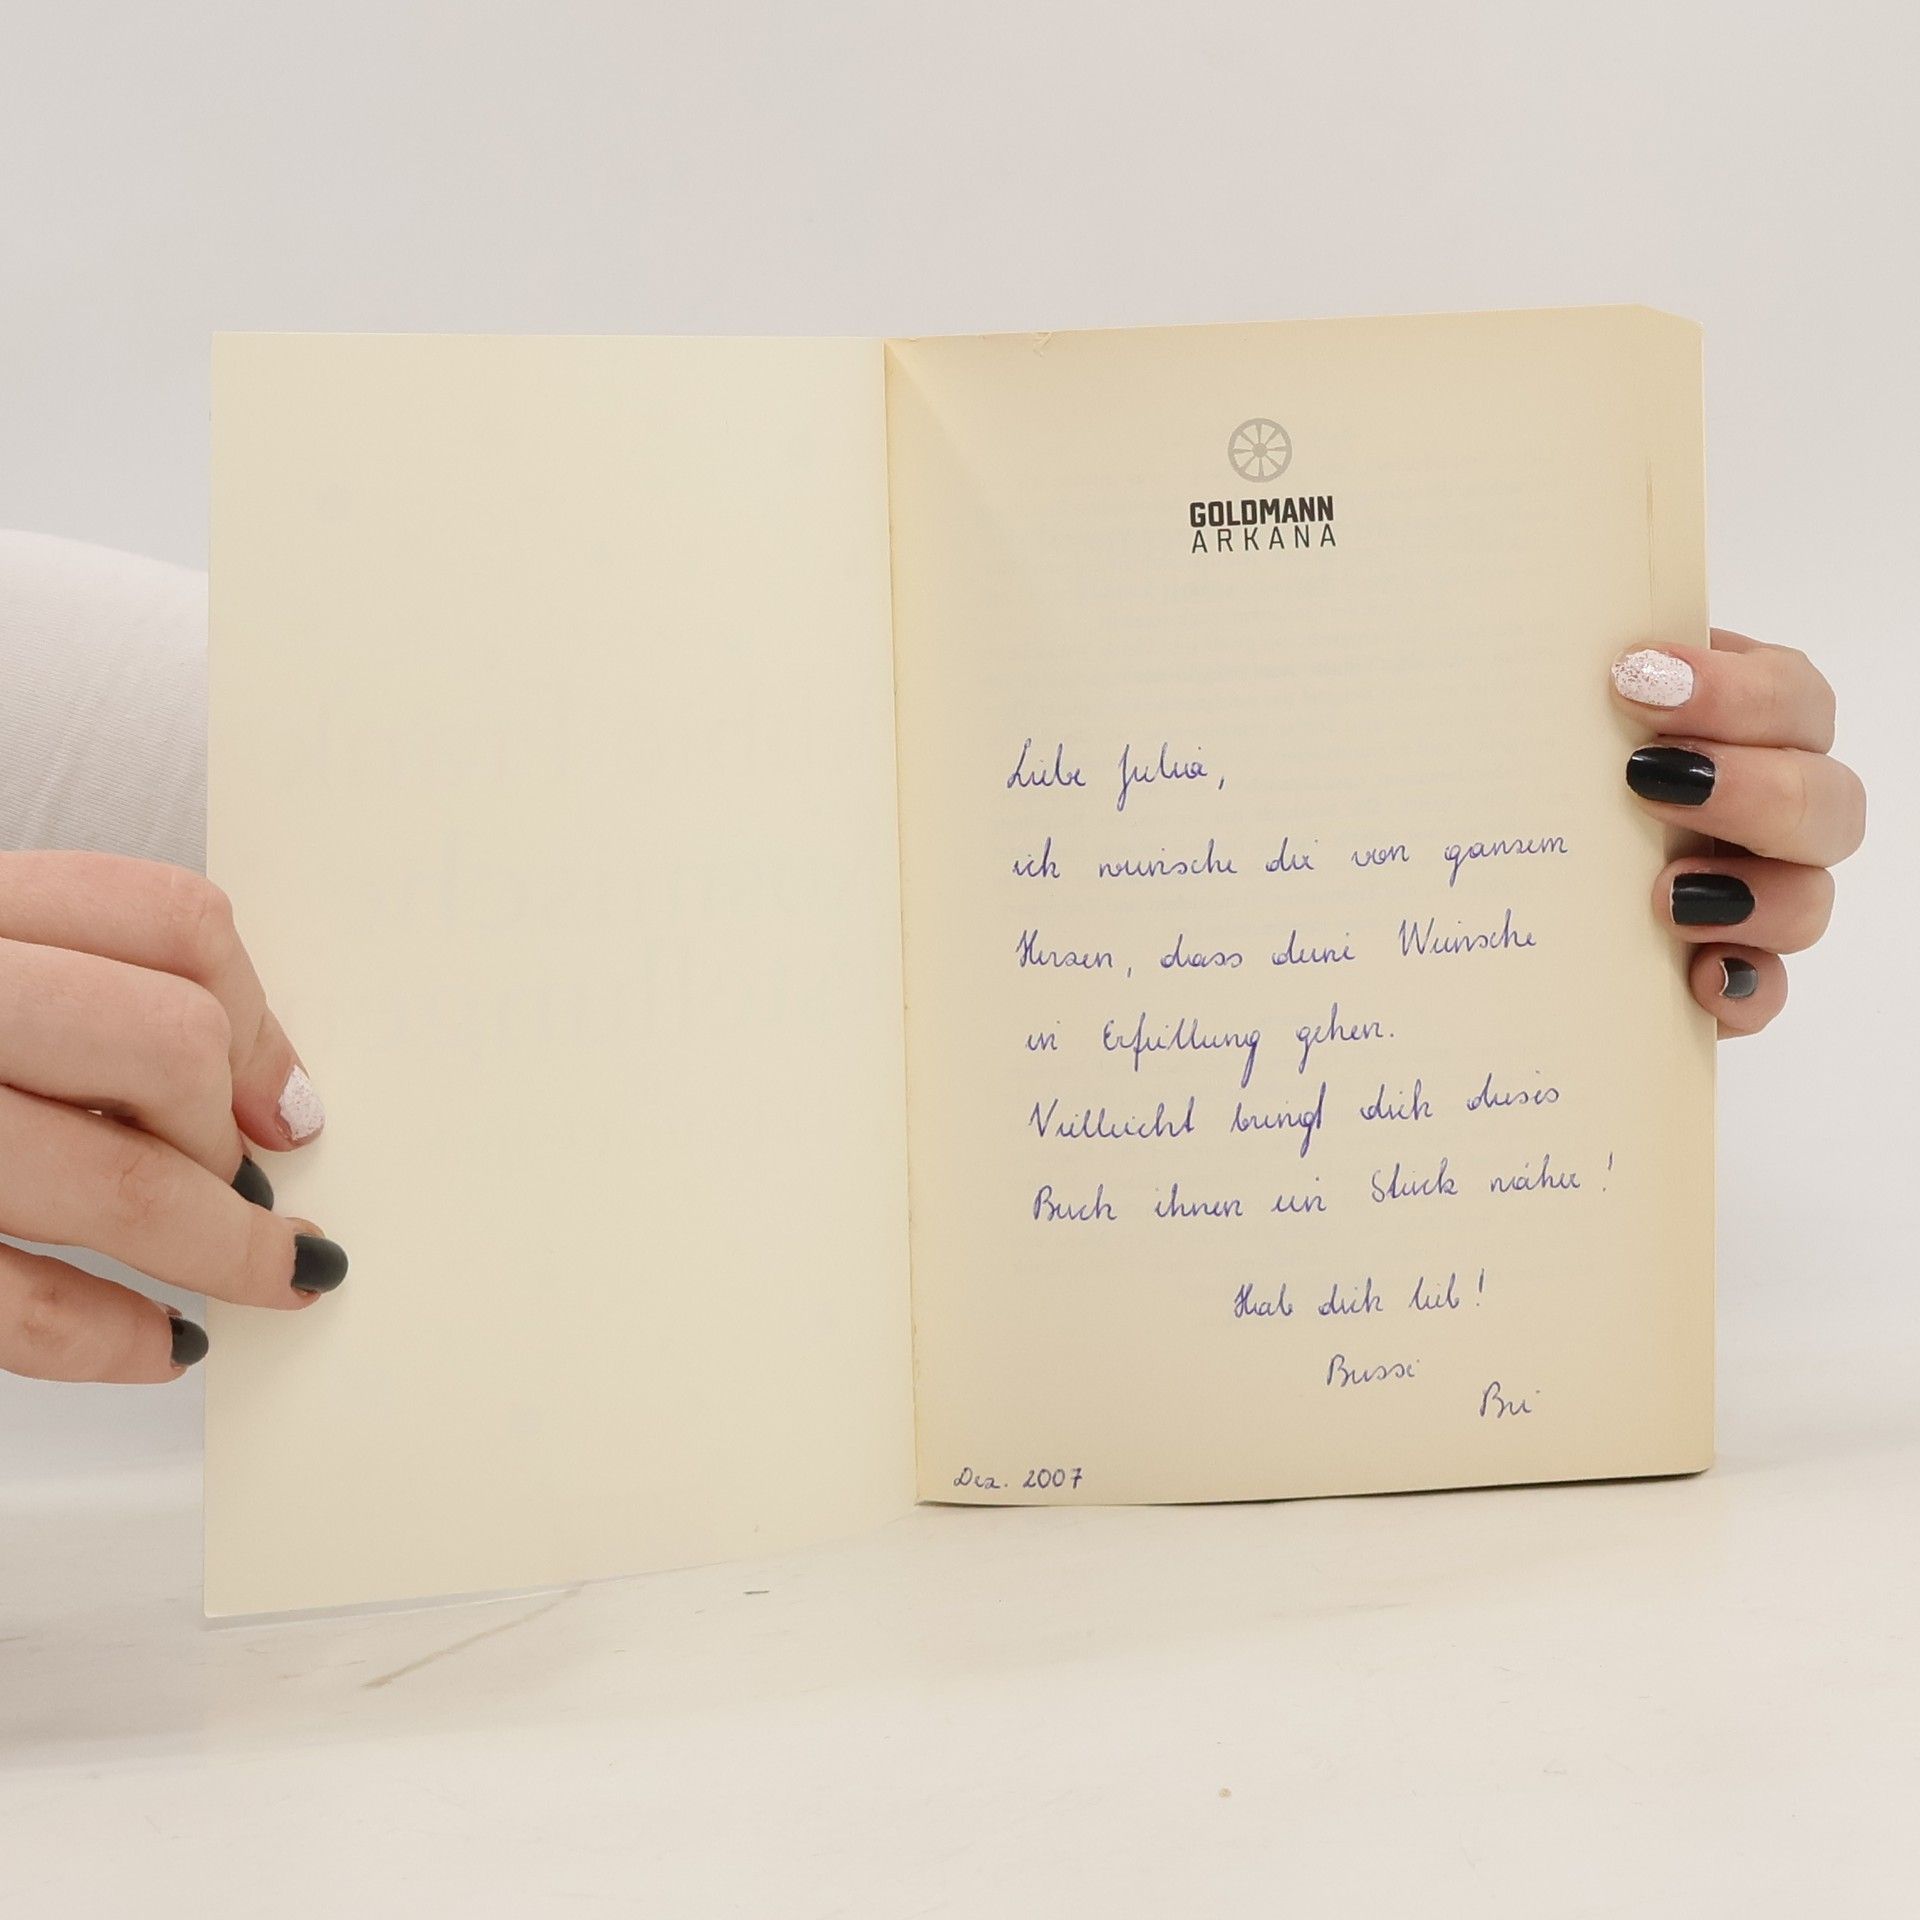 GOLDMANN
ARKANA
Liebe Julia,
ich wünsche dir von ganzem
Herzen, dass deine Wünsche
in Erfüllung gehen.
Vielleicht bringt dich dieses
Buch ihnen ein Stück näher!
Hab dich lieb!
Bussi
Bri
Dez. 2007